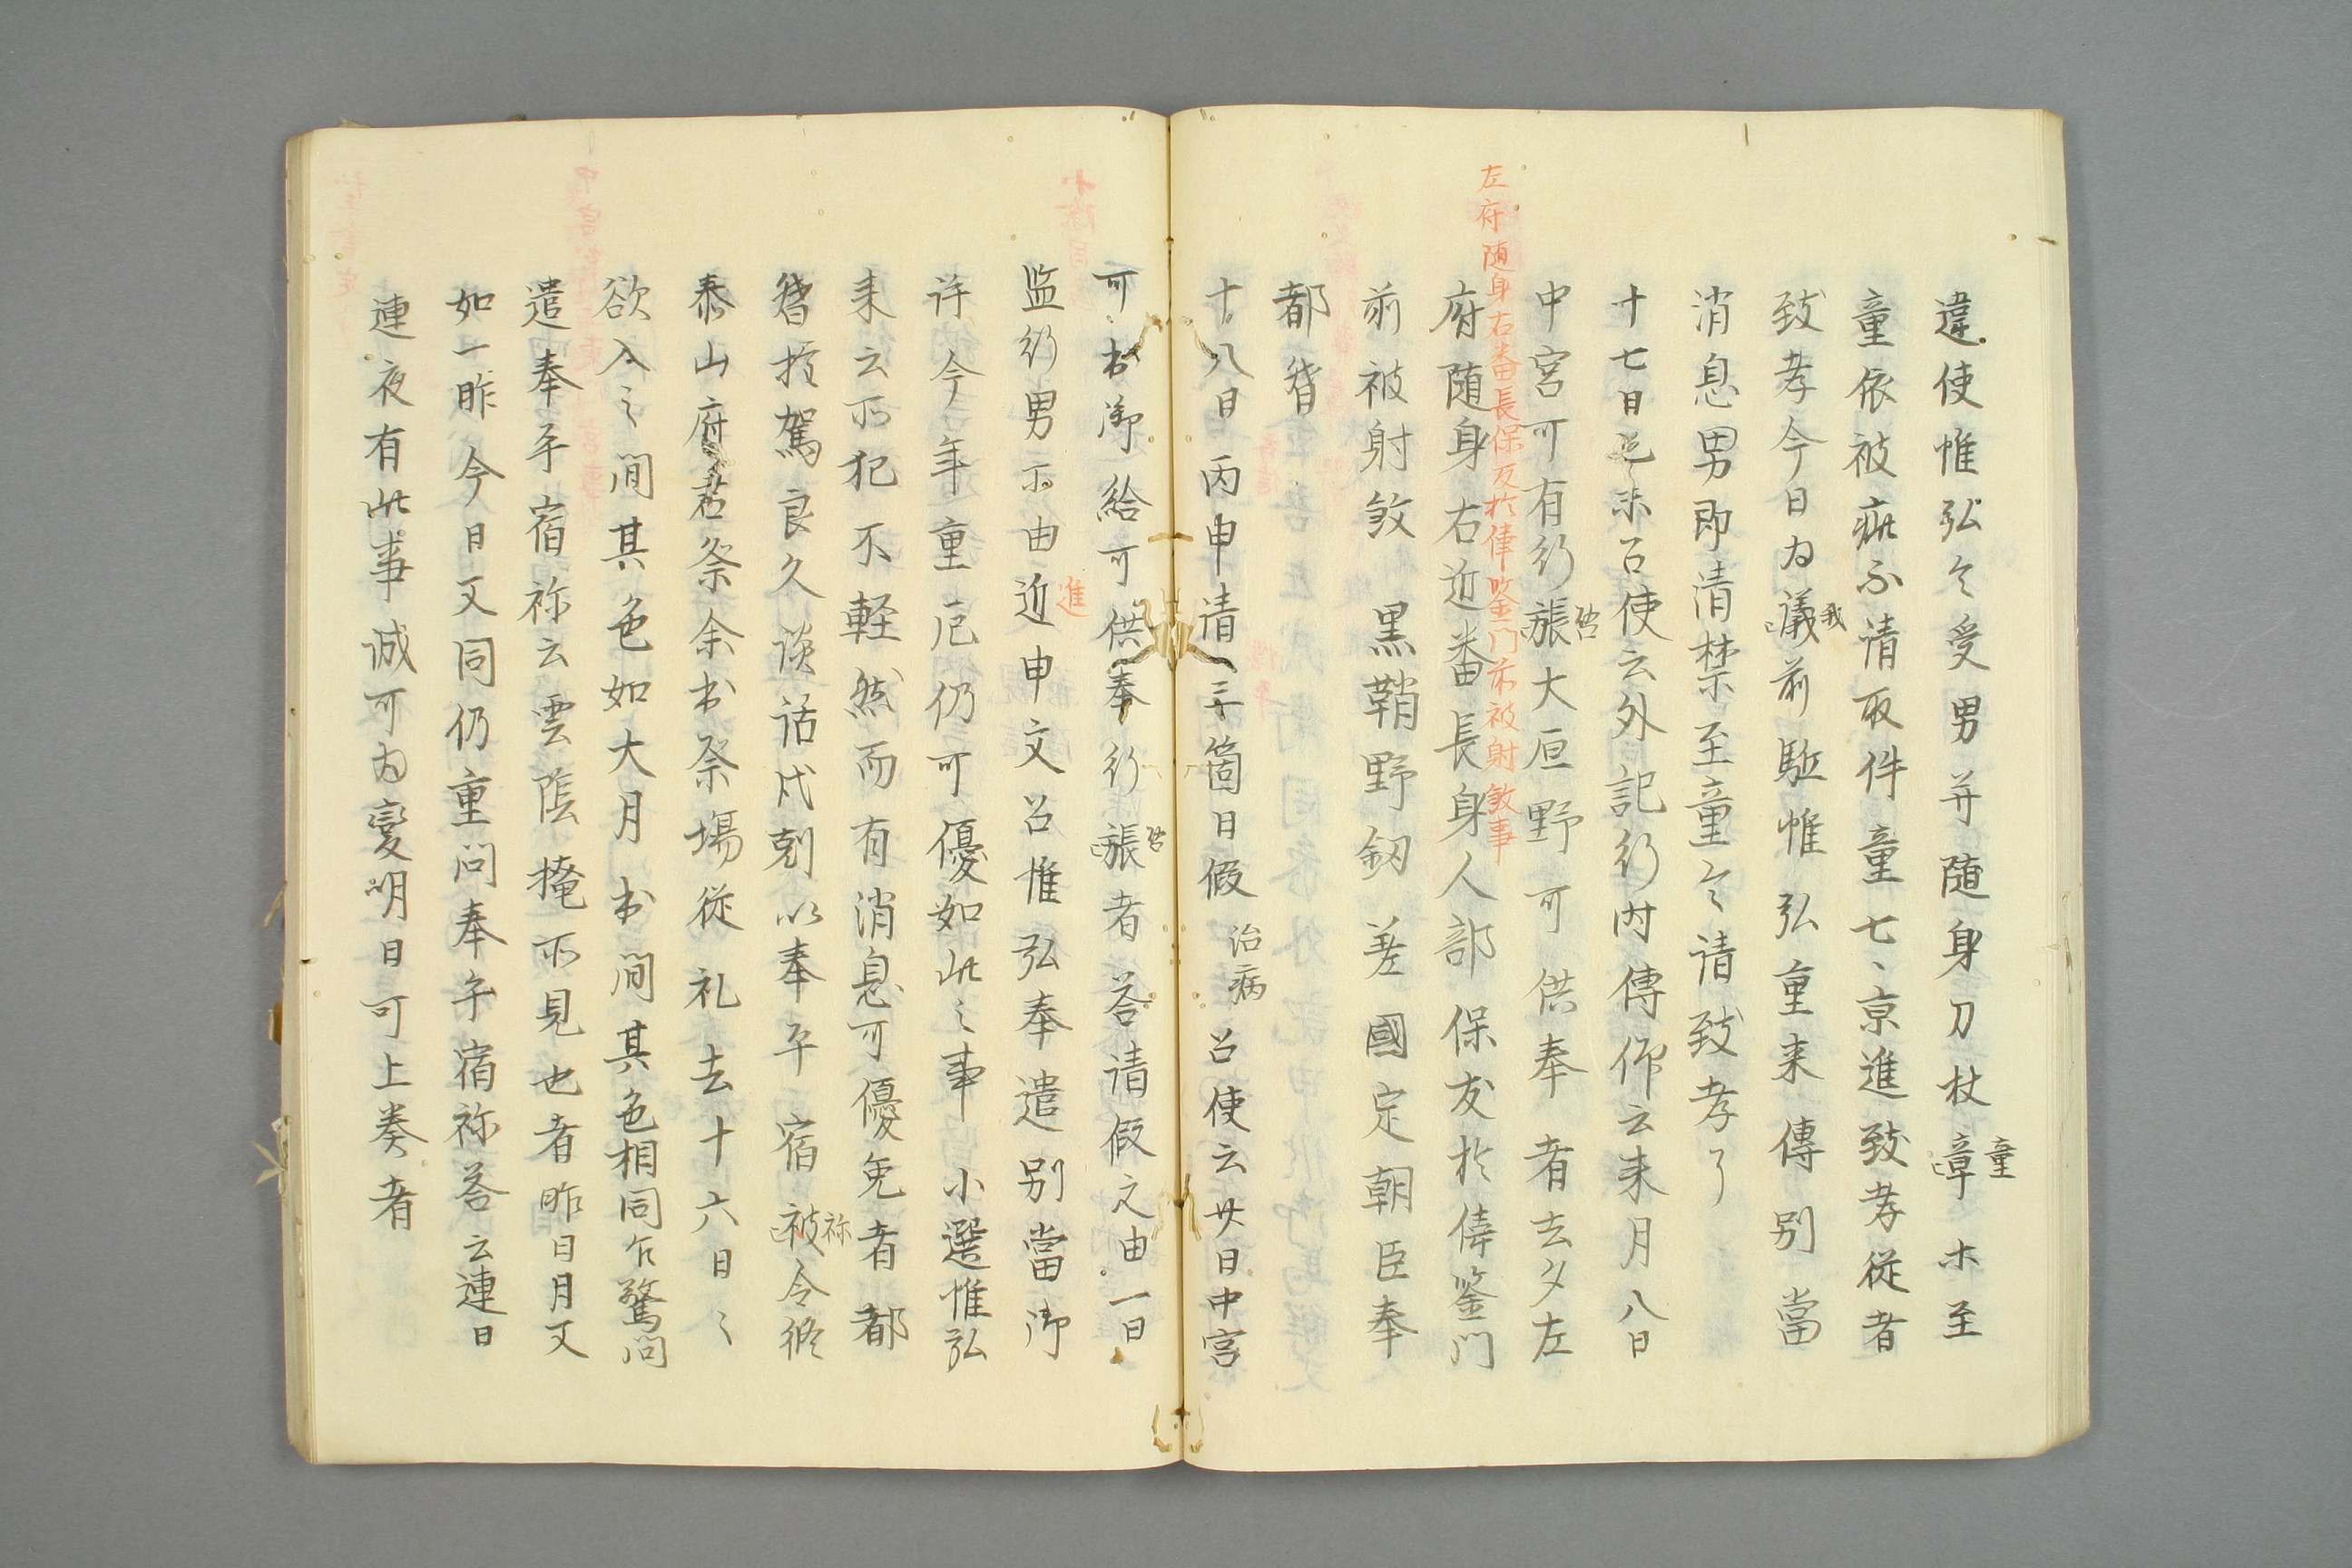 違使惟弘令受男并随身刀杖章童ホ至
童依被疵不请取件童七、京進致孝従者
致孝今日为議我前駈惟弘重来傳别當
消息男即清禁至童令请致孝了
十七日乙未召使云外記行内傳仰云来月八日
中宮可有行脹啓大原野可供奉者去夕左
左府随身右番長保友於俸鉴门前被射敛事
府随身右近番長身人部保友於俸鉴门
前被射敛 黒鞘野釼 差國定朝臣奉
都督
十八日丙申请三箇日假治病召使云廿日中宮
可出御給可供奉行脹啓者荅请假之由一日
监行男示由近進申文召惟弘奉遣别當御
许今年重厄仍可優如此之事 小選惟弘
来云所犯不軽然而有消息可優免者都
督扵駕良久談话戌剋以奉平宿被祢令修
泰山府君祭余出祭場従礼去十六日〻
欲入之间其色如大月出间其色相同乍驚问
遣奉平宿祢云雲陰掩不見也者昨日月又
如一昨今日又同仍重问奉平宿祢荅云連日
連夜有此事诚可为變明日可上奏者